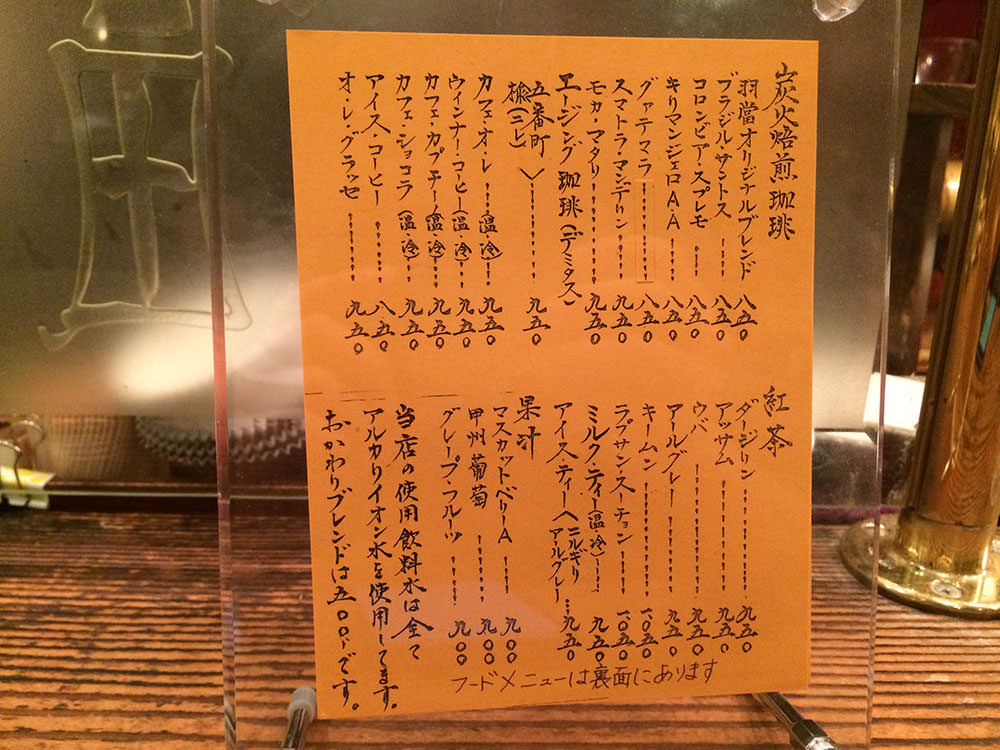 炭火焙煎珈琲
羽當オリジナルブレンド……八五〇
ブラジル・サントス……八五〇
コロンビア・スプレモ……八五〇
キリマンジェロA・A……八五〇
グァテマラ……八五〇
スマトラ・マンデリン……九五〇
モカ・マタリ……九五〇
エージング珈琲(デミタス)
五番町
楡(ニレ)……九五〇
カフェ・オ・レ……(温・冷)……九五〇
ウィンナー・コーヒー(温・冷)……九五〇
カフェ・カプチーノ(温・冷)……九五〇
カフェ・ショコラ(温・冷)……九五〇
アイス・コーヒー……八五〇
オ・レ・グラッセ……九五〇
紅茶
ダージリン……九五〇
アッサム……九五〇
ウバ……九五〇
アールグレー……九五〇
キームン……一〇五〇
ラプサンスーチョン……一〇五〇
ミルク・ティー(温・冷)……九五〇
アイス・ティー ニルギリ アールグレー……九五〇
果汁
マスカットベリーA……九〇〇
甲州葡萄……九〇〇
グレープ・フルーツ……九〇〇
当店の使用飲料水は全て
アルカリイオン水を使用してます。
おかわりブレンドは五〇〇-です。
フードメニューは裏面にあります